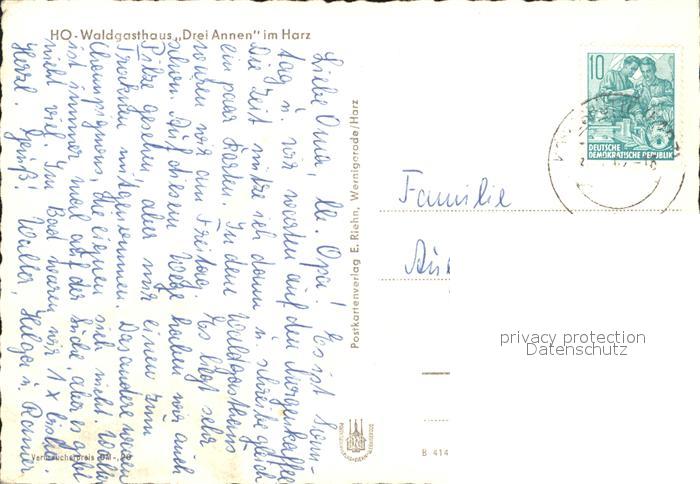 HO-Waldgasthaus „Drei Annen" im Harz
Liebe Oma, lb. Opa! Es ist Sonn-
tag u. wir warten auf den Morgenkaffee.
Die Zeit nutze ich dann u. schreibe gleich
ein paar Karten. In dem Waldgasthaus
waren wir am Freitag. Es liegt sehr
schön. Auf diesem Wege haben wir auch
Pilze gesehen, aber nur einen zum
Trocknen mitgenommen. Das andere waren
Champignons, die eignen sich nicht. Walter
ist immer mal auf der Suche, aber es gibt
nicht viel. Im Bad waren wir 1 x
Herzl. Grüß! Walter, Helga u. Rainer
Verbraucherpreis DM -,20
Postkartenverlag E. Riehn, Wernigerode/Harz
10
DEUTSCHE
DEMOKRATISCHE REPUBLIK
Familie
privacy protection
Datenschutz
B 414